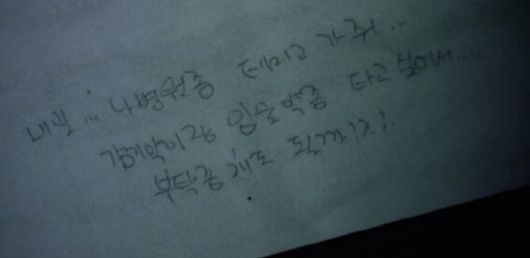 내일... 나 병원좀 데리고 가줘...
감기약이랑 입술약좀 타고 싶어서....
부탁좀 해도 될까!?!